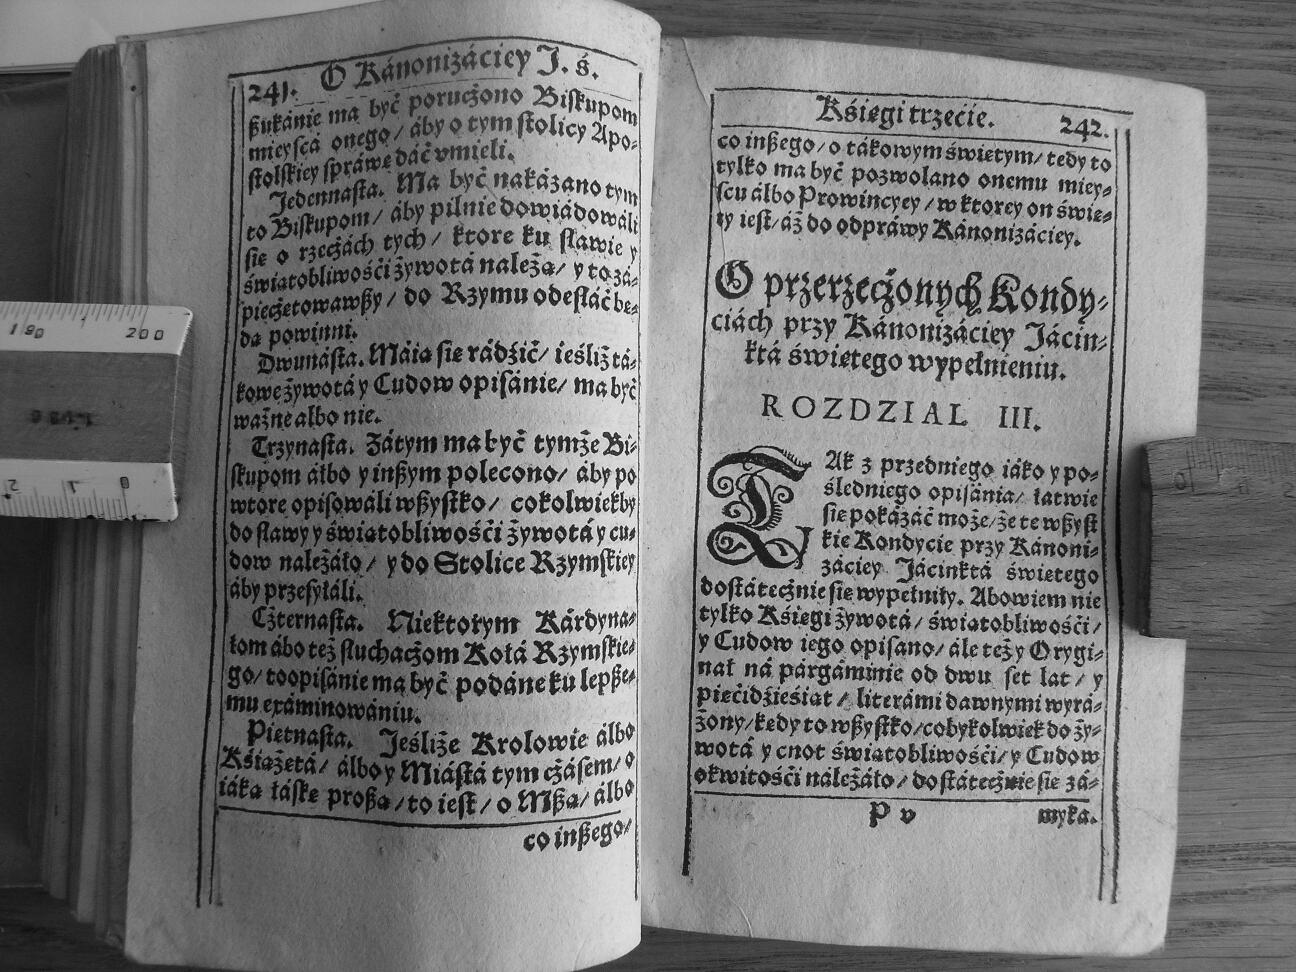 241. O Kánonizáciey J. ś.
ßukánie ma być poruczono Biskupom
mieyscá onego/ áby o tym stolicy Apo-
stolskiey spráwę dáć vmieli.
Jedennasta. Ma być nakázano tym
to Biskupom/ áby pilnie dowiádowáli
się o rzeczách tych/ ktore ku sławie y
świątobliwośći żywotá należą/ y to zá-
pieczętowawßy/ do Rzymu odesłáć bę-
dą powinni.
Dwunasta. Máią się rádźić/ ieśliż tá-
kowe żywotá y Cudow opisánie/ ma być
ważne albo nie.
Trzynasta. Zátym ma być tymże Bi-
skupom álbo y inßym polecono/ áby po
wtore opisowáli wßystko/ cokolwiekby
do sławy y świątobliwośći żywotá y cu-
dow należáło/ y do Stolice Rzymskiey
áby przesyłáli.
Czternasta. Niektorym Kárdyna-
łom ábo też słuchaczom Rotá Rzymskie-
go/ to opisánie ma być podáne ku lepße-
mu exáminowániu.
Piętnasta. Jeśliże Krolowie álbo
Kśiążętá/ álbo y Miástá tym czásem/ o
iáką łáskę proßą/ to iest/ o Mßą/ álbo
co inßego/
Kśięgi trzećie. 242.
co inßego/ o tákowym świętym/ tedy to
tylko ma być pozwolano onemu miey-
scu álbo Prowincyey/ w ktorey on świę-
ty iest/ áż do odpráwy Kánonizáciey.
O przerzeczonych Kondy-
ciách przy Kánonizáciey Jácin-
ktá świętego wypełnieniu.
ROZDZIAL III.
TAk z przedniego iáko y po-
śledniego opisánia/ łatwie
się pokázáć może/ że te wßyst
kie Kondycie przy Kánoni-
záciey Jácinktá świętego
dostátecznie się wypełniły. Abowiem nie
tylko Kśięgi żywotá/ świątobliwośći/
y Cudow iego opisano/ ále też y Orygi-
nał ná párgáminie od dwu set lat/ y
pięćidźieśiąt/ literámi dawnymi wyrá-
żony/ kędy to wßystko/ cobykolwiek do ży-
wotá y cnot świątobliwośći/ y Cudow
okwitośći náleżáło/ dostátecznie się zá-
P v myka.